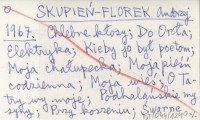 SKUPIEŃ-FLOREK Andrzej
1967. Chlebne kłosy; Do Orła;
Elektryka; Kieby jo był poetom;
Moja chałupecka; Moja pieśń
codzienna; Moja wieś; O Ta-
try wy moje; Podhalańskie my
syny; Przy koszeniu; Swarne